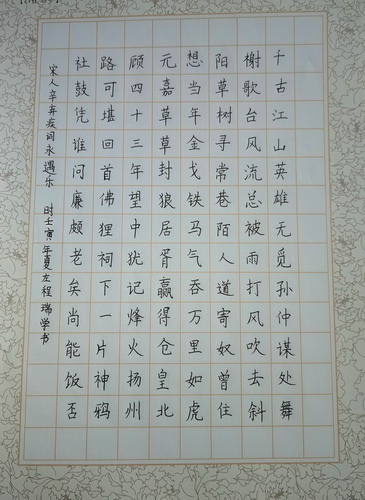 千古江山英雄无觅孙仲谋处舞
榭歌台风流总被雨打风吹去斜
阳草树寻常巷陌人道寄奴曾住
想当年金戈铁马气吞万里如虎
元嘉草草封狼居胥赢得仓皇北
顾四十三年望中犹记烽火扬州
路可堪回首佛狸祠下一片神鸦
社鼓凭谁问廉颇老矣尚能饭否
宋人辛弃疾词永遇乐 时壬寅年夏左程瑞学书